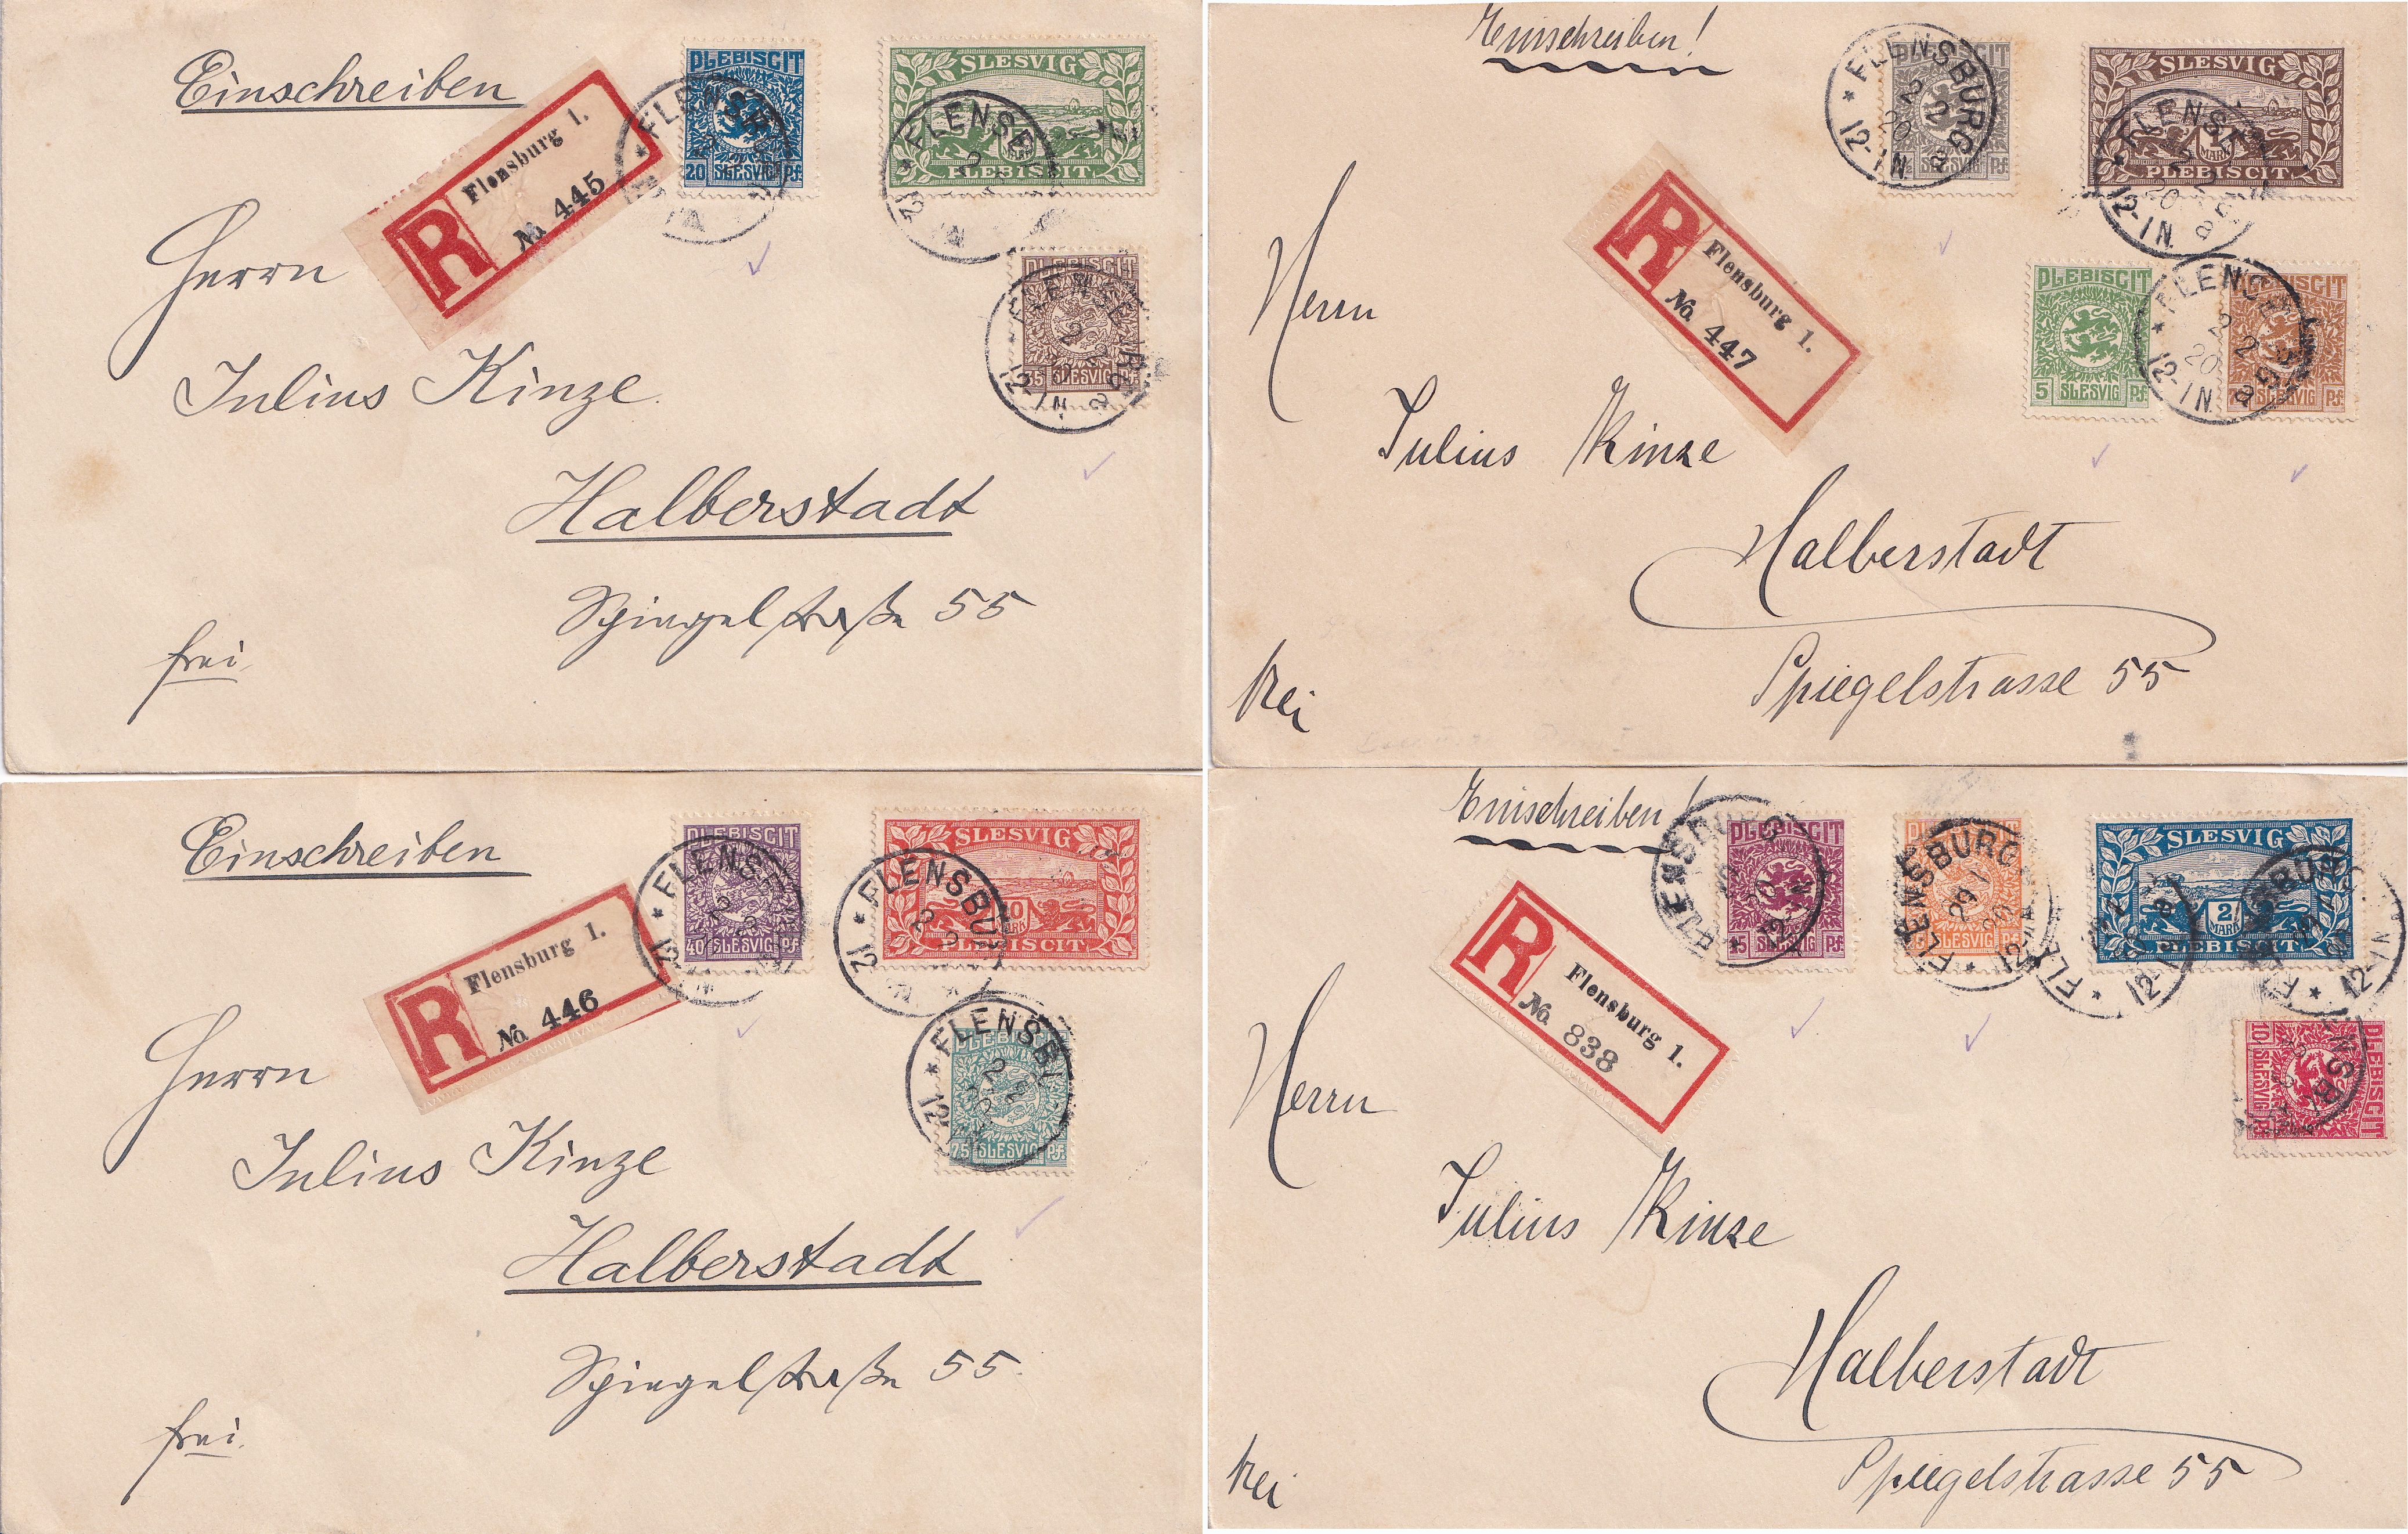 Einschreiben
Flensburg 1.
No. 445
PLEBISCIT
20 SLESVIG Pf.
SLESVIG
PLEBISCIT
FLENSB
12-1N
PLEBISCIT
35 SLESVIG Pf.
Herrn
Julius Kinze.
Halberstadt
Spiegelstraße 55
frei
Einschreiben!
R
Flensburg 1.
No. 447
FLENSBURG
2 2 20
12-1N. a
SLESVIG Pf.
SLESVIG
1 MARK
PLEBISCIT
PLEBISCIT
5 SLESVIG Pf.
PLEBISCIT
SLESVIG Pf.
Herrn
Julius Kinze
Halberstadt
Spiegelstrasse 55
frei
Einschreiben
R
Flensburg 1.
No. 446
PLEBISCIT
40 SLESVIG Pf.
SLESVIG
10 MARK
PLEBISCIT
FLENSBU
PLEBISCIT
75 SLESVIG Pf.
Herrn
Julius Kinze
Halberstadt
Spiegelstraße 55.
frei.
Einschreiben!
R
Flensburg 1.
No. 838
PLEBISCIT
15 SLESVIG Pf.
FLENSBURG
29 1 20
SLESVIG Pf.
SLESVIG
2 MARK
PLEBISCIT
PLEBISCIT
10 SLESVIG Pf.
Herrn
Julius Kinze
Halberstadt
Spiegelstrasse 55
frei